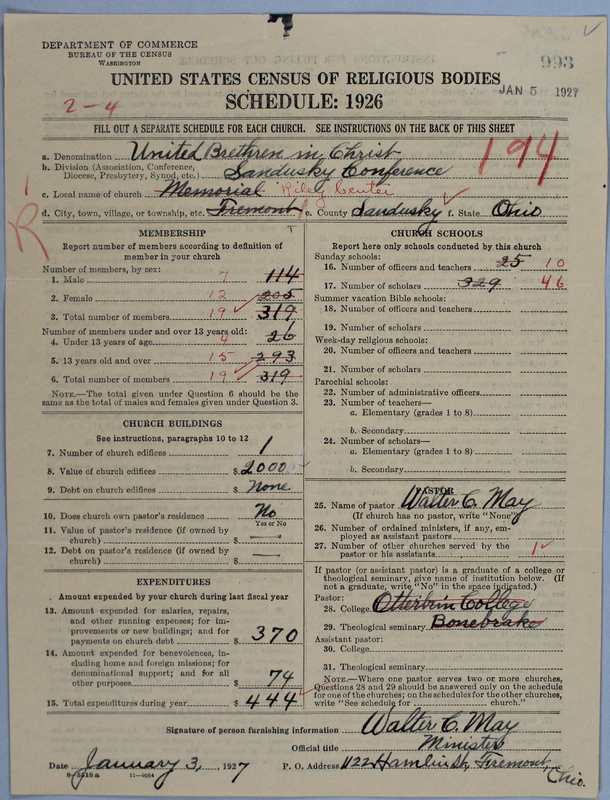 DEPARTMENT OF COMMERCE
BUREAU OF THE CENSUS
WASHINGTON
993
JAN 5 1927
UNITED STATES CENSUS OF RELIGIOUS BODIES
2-4
SCHEDULE: 1926
FILL OUT A SEPARATE SCHEDULE FOR EACH CHURCH. SEE INSTRUCTIONS ON THE BACK OF THIS SHEET
194
a. Denomination United Brethren in Christ
b. Division (Association, Conference, Diocese, Presbytery, Synod, etc.) Sandusky Conference
c. Local name of church Memorial Riley Center
d. City, town, village, or township, etc. Fremont e. County Sandusky f. State Ohio
R
MEMBERSHIP
Report number of members according to definition of member in your church
Number of members, by sex:
1. Male 7 114
2. Female 12 205
3. Total number of members 19 319
Number of members under and over 13 years old:
4. Under 13 years of age 4 26
5. 13 years old and over 15 293
6. Total number of members 19 319
NOTE.—The total given under Question 6 should be the same as the total of males and females given under Question 3.
CHURCH BUILDINGS
See instructions, paragraphs 10 to 12
7. Number of church edifices 1
8. Value of church edifices $ 2000
9. Debt on church edifices $ None
10. Does church own pastor's residence? No
Yes or No
11. Value of pastor's residence (if owned by church) $ —
12. Debt on pastor's residence (if owned by church) $ —
EXPENDITURES
Amount expended by your church during last fiscal year
13. Amount expended for salaries, repairs, and other running expenses; for improvements or new buildings; and for payments on church debt $ 370
14. Amount expended for benevolences, including home and foreign missions; for denominational support; and for all other purposes $ 74
15. Total expenditures during year $ 444
CHURCH SCHOOLS
Report here only schools conducted by this church
Sunday schools:
16. Number of officers and teachers 25 10
17. Number of scholars 329 46
Summer vacation Bible schools:
18. Number of officers and teachers
19. Number of scholars
Week-day religious schools:
20. Number of officers and teachers
21. Number of scholars
Parochial schools:
22. Number of administrative officers
23. Number of teachers—
a. Elementary (grades 1 to 8)
b. Secondary
24. Number of scholars—
a. Elementary (grades 1 to 8)
b. Secondary
PASTOR
25. Name of pastor Walter C. May
(If church has no pastor, write "None")
26. Number of ordained ministers, if any, employed as assistant pastors
27. Number of other churches served by the pastor or his assistants 1
If pastor (or assistant pastor) is a graduate of a college or theological seminary, give name of institution below. (If not a graduate, write "No" in the space indicated.)
Pastor:
28. College Otterbein College
29. Theological seminary Bonebrake
Assistant pastor:
30. College
31. Theological seminary
NOTE.—Where one pastor serves two or more churches, Questions 28 and 29 should be answered only on the schedule for one of the churches; on the schedules for the other churches, write "See schedule for church."
Signature of person furnishing information Walter C. May
Official title Minister
Date January 3, 1927 P. O. Address 1122 Hamlin St, Fremont, Ohio.
8-5318a 11-9054